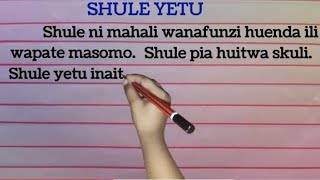 SHULE YETU
Shule ni mahali wanafunzi huenda ili
wapate masomo. Shule pia huitwa skuli.
Shule yetu inait